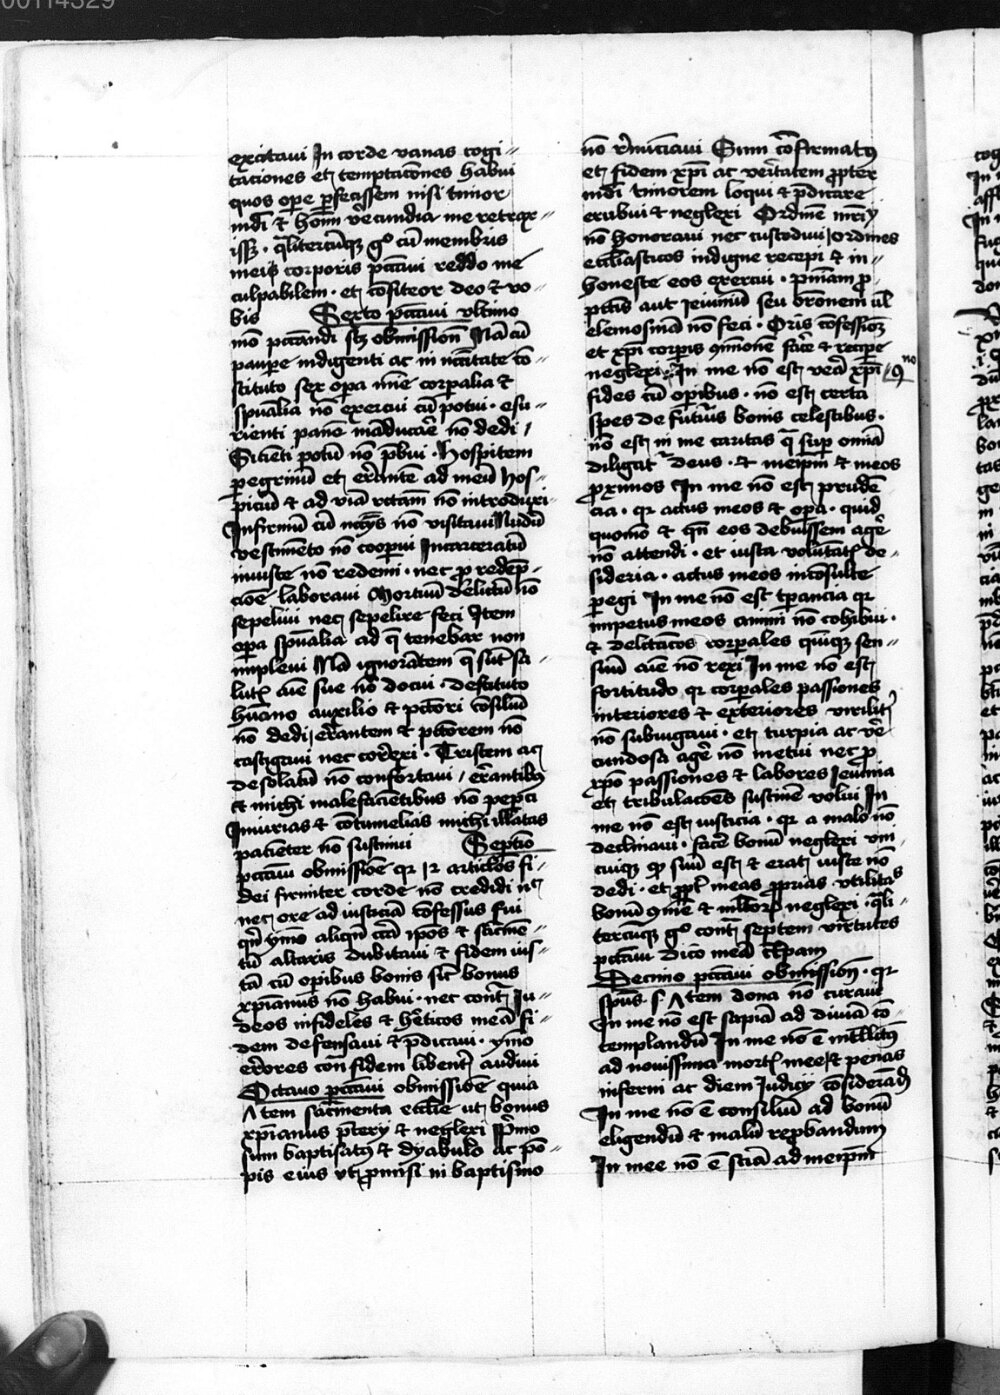 00114329
excitaui In corde vanas cogi〃
taciones et temptacōnes habui
quos ope ꝑfecissem nisi timor
mdi & hoīm v̄ecundia me retrax〃
issꝫ · qͣlitercūqꝫ gͦ cū membris
meis corporis pctāui reddo me
culpabilem · et cōfiteor deo & vo〃
bis Sexto pctāui vltimo
mō pctandi sꝫ obmissionē Nā cū
paupe indigenti ac in nctītate cō〃
stituto sex opa mīe corpalia &
spūalia nō exercui cū potui · esu〃
rienti panē māducar̄e nō dedi /
Sicīeti potū nō p̄bui · hospitem
ꝑegrinū et er̄antē ad meū hos〃
piciū & ad viā rctam nō introduxi
Infirmū cū nctīs nō visitaui Nudū
vestimēto nō coopui Incarceratū
iniuste nō redemi · nec ꝓ redēp〃
cōe laboraui Mortuū delictū nō
sepeliui nec sepelire feci Item
opa spūalia ad q̄ tenebar non
impleui Nā ignorātem q̄ sūt sa〃
lutꝭ aīe sue nō docui · destituto
hūano auxilio & pctōri cōsiliū
nō dedi er̄antem & pctōrem nō
castigaui nec cor̄exi · Tristem ac
desolatū nō confortaui / er̄antibꝰ
& michi malefaciētibus nō pepci
Iniurias & cōtumelias michi illatas
paciēter nō sustinui Septīo
pctāui obmissiōe qr 12 articlōs fi〃
dei firmiter corde nō credidi nc̄
nec ore ad iusticiā cōfessus fui
qn̄ ymo aliqn̄ circā ip̄os & sacm̄e〃
tū altaris dubitaui & fidem uis〃
tā cū opibus bonis sic̄ bonus
xpīanus nō habui · nec contͣ Iu〃
deos infideles & hēticos meā fi〃
dem defensaui & p̄dicaui · ymo
er̄ores conͣ fidem libentͬ audiui
Octauo pctāui obmissiōe quia
Λtem sacm̄enta ecclīe ut bonus
xpīanus p̄tery & neglexi Pͥmo
sum baptisatꝰ & dyabulo ac pō〃
pis eius vt ꝓmisi in baptismo
nō r̄nūciaui Sum cōfirmatꝰ
et fidem xpī ac v̄itatem ꝓpter
mdi timorem loqui & p̄dicare
erubui & neglexi Ordinē mrīy
nō honoraui nec custodiui Iordines
ecclīasticos indigne recepi & in〃
honeste eos exercui · pn̄iam ꝓ
pctīs aut Ieiuniū seu or̄onem ul̄
elemosinā nō feci · Oris cōfessioꝫ
et xpī corpis ꝯmōnē fac̄e & recipe
neglexi · In me nō est vera xpī 9 no
fides cū opibus · nō est certa
spes de futuris bonis celestibus ·
nō est in me caritas q̄ sup omīa
diligatͬ deus · & meipm̄ & meos
ꝓximos In me nō est prudē
cia · qr actus meos & opa · quid
quomō & qn̄ eos debuissem agē
nō attendi · et iusta volūtatꝭ de〃
sideria · actus meos incōsulte
ꝑegi In me nō est tpancia qr
impetus meos aīmi nō cohibui ·
& delctācōs corpales quīqꝫ sen〃
suū aīe nō rexi In me nō est
fortitudo qr corpales passiones
interiores & exteriores virilitͬ
nō subiugaui · et turpia ac v̄e
cundosa agē nō metui nec ꝓ
xpō passiones & labores Ieiunia
et tribulacōes sustinē volui In
me nō est iusticia · qr a malo nō
declinaui · fac̄e bonū neglexi vni
cuiqꝫ qd suū est & erat iuste nō
dedi · et ppt̄ meas ꝓprias vtilitas
bonū ꝯmē & mltōꝝ neglexi · qͣli〃
tercūqꝫ gͦ contͣ septem virtutes
pctāui dico meā clpam
Decimo pctāui obmissionē · qr
spūs sͥ Λtem dona nō curaui
In me nō est sapīa ad diuīa cō〃
templandū In me nō ē intllctꝰ
ad nouissima mortꝭ mee & penas
inferni ac diem Iudicij cōsiderādꝭ
In me nō ē consiliū ad bonū
eligendū & malū reprobandum
In mee nō ē sciā ad meipm̄